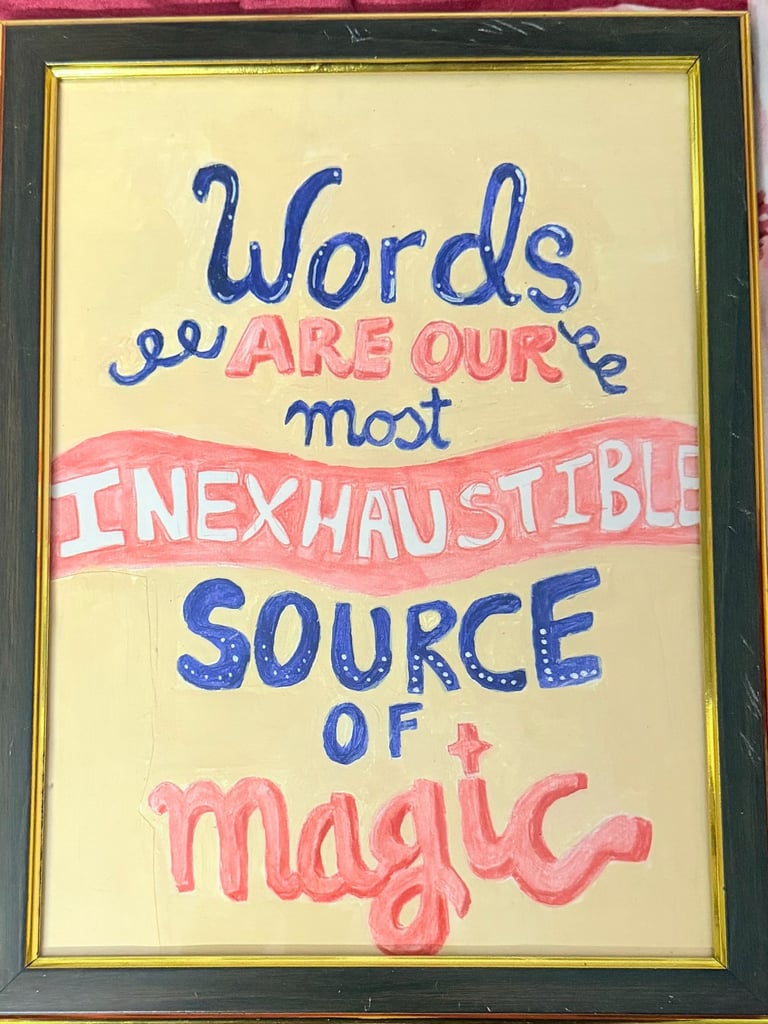 Words
ARE OUR
most
INEXHAUSTIBLE
SOURCE
OF
magic